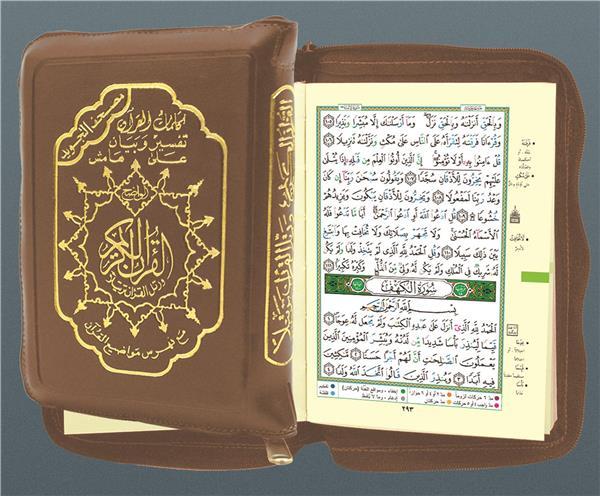 مصحف التجويد
كلمات القرآن
تفسير وبيان
على هامش
القرآن الكريم
ورتل القرآن ترتيلا
مع فهرس مواضيع القرآن
وَبِٱلْحَقِّ أَنزَلْنَٰهُ وَبِٱلْحَقِّ نَزَلَ ۗ وَمَآ أَرْسَلْنَٰكَ إِلَّا مُبَشِّرًا وَنَذِيرًا ﴿١٠٥﴾
وَقُرْءَانًا فَرَقْنَٰهُ لِتَقْرَأَهُۥ عَلَى ٱلنَّاسِ عَلَىٰ مُكْثٍ وَنَزَّلْنَٰهُ تَنزِيلًا ﴿١٠٦﴾
قُلْ ءَامِنُوا۟ بِهِۦٓ أَوْ لَا تُؤْمِنُوٓا۟ ۚ إِنَّ ٱلَّذِينَ أُوتُوا۟ ٱلْعِلْمَ مِن قَبْلِهِۦٓ إِذَا يُتْلَىٰ
عَلَيْهِمْ يَخِرُّونَ لِلْأَذْقَانِ سُجَّدًا ﴿١٠٧﴾ وَيَقُولُونَ سُبْحَٰنَ رَبِّنَآ إِن كَانَ
وَعْدُ رَبِّنَا لَمَفْعُولًا ﴿١٠٨﴾ وَيَخِرُّونَ لِلْأَذْقَانِ يَبْكُونَ وَيَزِيدُهُمْ
خُشُوعًا ﴿١٠٩﴾ قُلِ ٱدْعُوا۟ ٱللَّهَ أَوِ ٱدْعُوا۟ ٱلرَّحْمَٰنَ ۖ أَيًّا مَّا تَدْعُوا۟ فَلَهُ
ٱلْأَسْمَآءُ ٱلْحُسْنَىٰ ۚ وَلَا تَجْهَرْ بِصَلَاتِكَ وَلَا تُخَافِتْ بِهَا وَٱبْتَغِ
بَيْنَ ذَٰلِكَ سَبِيلًا ﴿١١٠﴾ وَقُلِ ٱلْحَمْدُ لِلَّهِ ٱلَّذِى لَمْ يَتَّخِذْ وَلَدًا وَلَمْ يَكُن
لَّهُۥ شَرِيكٌ فِى ٱلْمُلْكِ وَلَمْ يَكُن لَّهُۥ وَلِىٌّ مِّنَ ٱلذُّلِّ ۖ وَكَبِّرْهُ تَكْبِيرًا ﴿١١١﴾
سُورَةُ الكَهْفِ
بِسْمِ ٱللَّهِ ٱلرَّحْمَٰنِ ٱلرَّحِيمِ
ٱلْحَمْدُ لِلَّهِ ٱلَّذِىٓ أَنزَلَ عَلَىٰ عَبْدِهِ ٱلْكِتَٰبَ وَلَمْ يَجْعَل لَّهُۥ عِوَجَا ﴿١﴾
قَيِّمًا لِّيُنذِرَ بَأْسًا شَدِيدًا مِّن لَّدُنْهُ وَيُبَشِّرَ ٱلْمُؤْمِنِينَ ٱلَّذِينَ
يَعْمَلُونَ ٱلصَّٰلِحَٰتِ أَنَّ لَهُمْ أَجْرًا حَسَنًا ﴿٢﴾ مَّٰكِثِينَ
فِيهِ أَبَدًا ﴿٣﴾ وَيُنذِرَ ٱلَّذِينَ قَالُوا۟ ٱتَّخَذَ ٱللَّهُ وَلَدًا ﴿٤﴾
٢٩٣